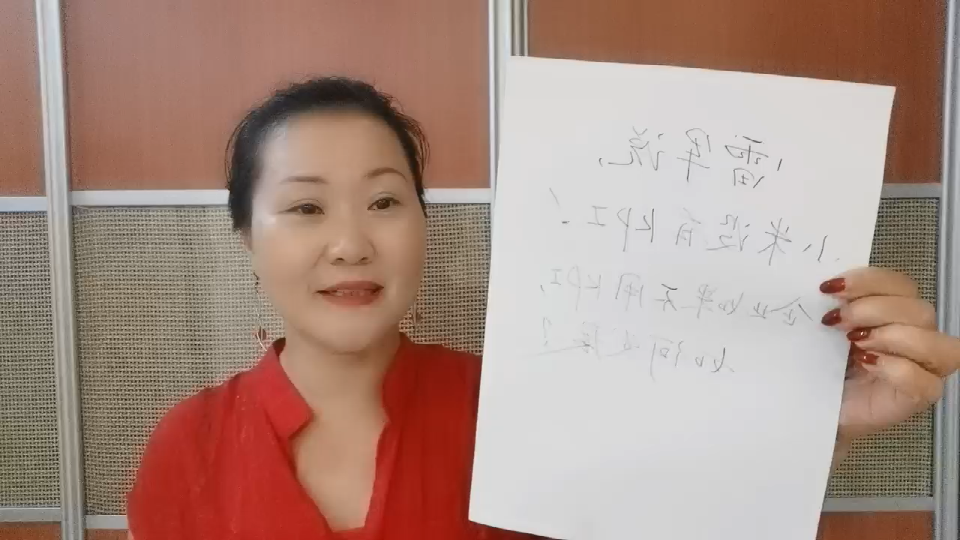 雷军说,
小米没有KPI!
企业如果不用KPI,
如何发展?